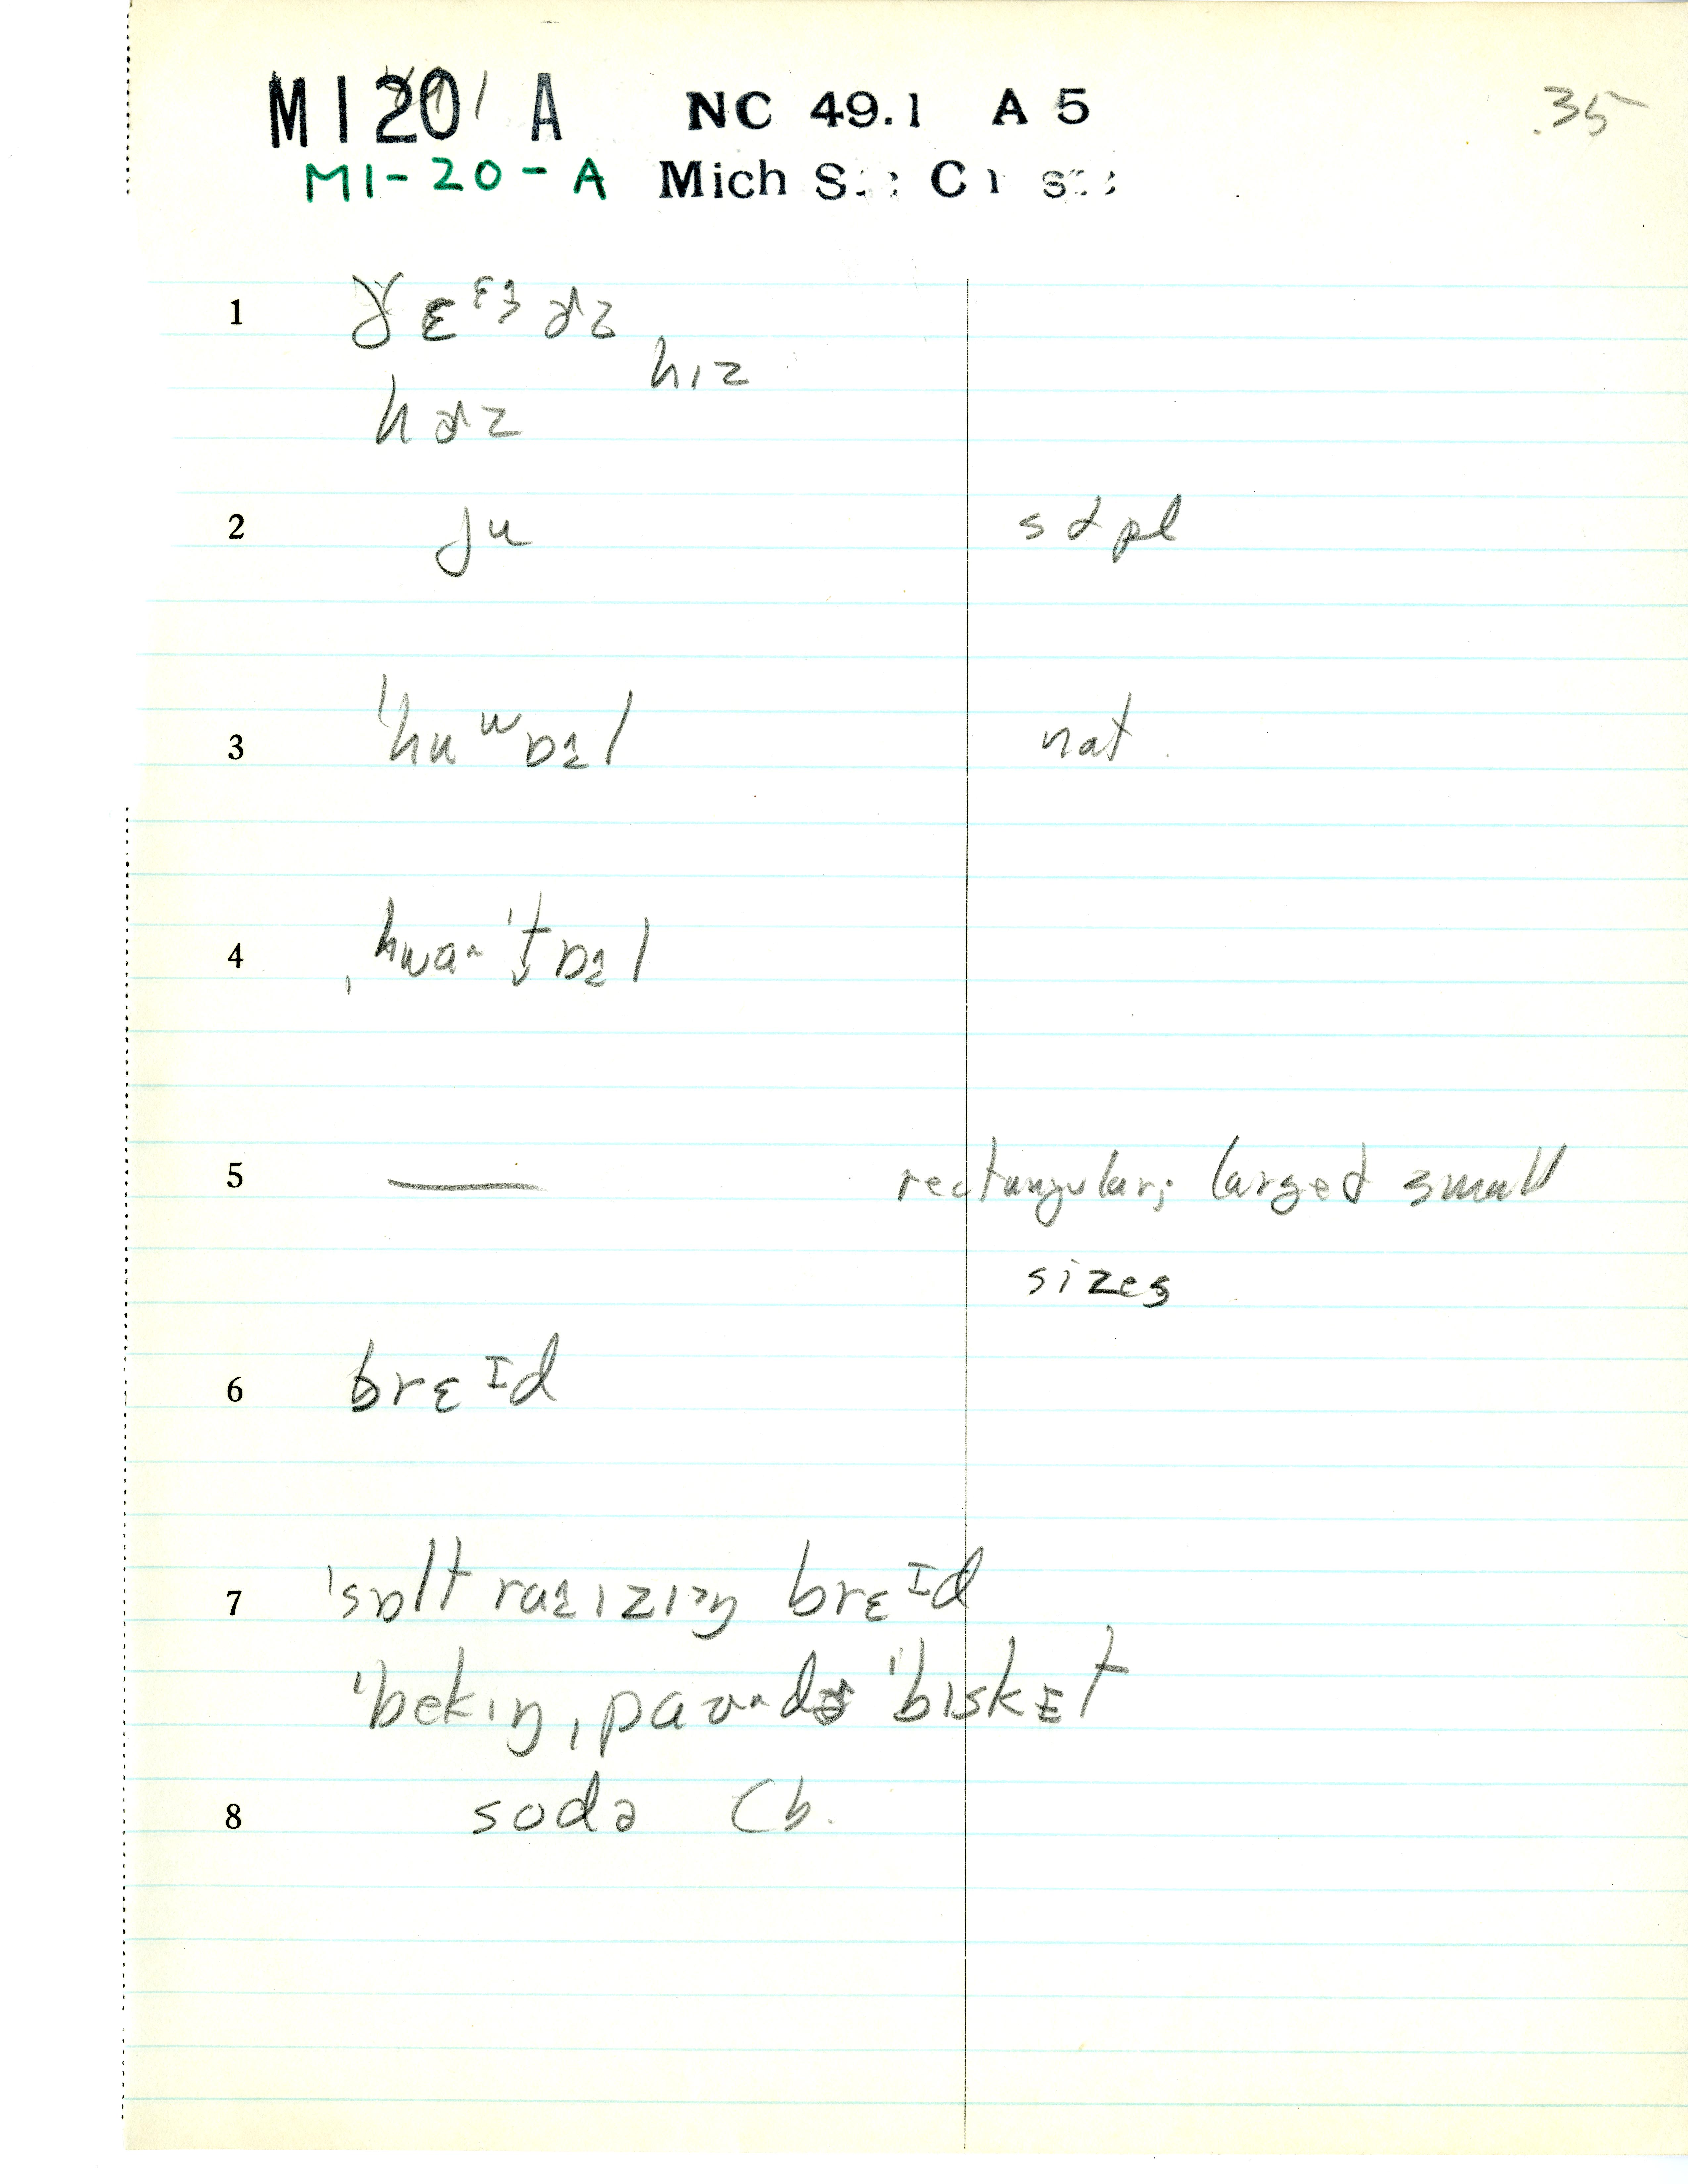 MI 20 A NC 49.1 A 5 .35
MI-20-A Mich
1 ðɛ ɚz
hɪz
hɚz
2 ju s & pl
3 ˈhuʷɒl nat.
4 ˌhwaˈtɒl
5 — rectangular; large & small
sizes
6 brɛᴵd
7 ˈsɒlt raɪzɪŋ brɛᴵd
ˈbekɪŋ ˌpaʊdɚ ˈbɪskɛt
8 sodə Cb.